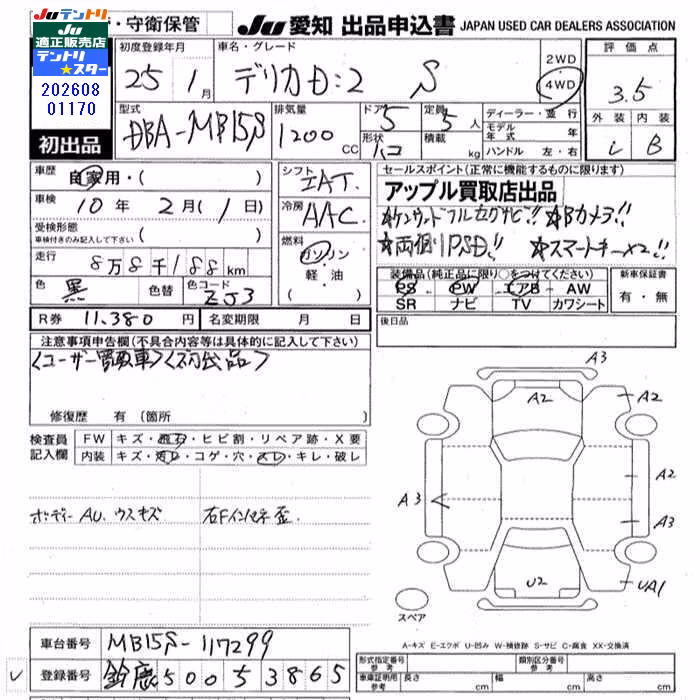 JUテントリ
JU
適正販売店
テントリ
★スター
202608
01170
・守衛保管
初出品
JU 愛知 出品申込書 JAPAN USED CAR DEALERS ASSOCIATION
初度登録年月
25 1月
車名・グレード
デリカD:2 S
2WD
4WD
評価点
3.5
外装 内装
B
型式
DBA-MB15S
排気量
1200 CC
ドア
5
形状
ハコ
定員
5人
積載 kg
ディーラー・並行
モデル年式 年
ハンドル 左・右
車歴
自家用・( )
車検
10年 2月(1日)
受検形態
車検付きのみ記入して下さい ( )
走行
8万8千188km
色
黒
色替
色コード
ZJ3
シフト
IAT
冷房
AAC
燃料
ガソリン
軽・油
セールスポイント(正常に機能するものに限ります)
アップル買取店出品
☆ケンウッドフルセグナビ!! ☆Bカメラ!!
☆両側PSD!! ☆スマートキー×2!!
装備品(純正品に限り○をつけてください)
PS PW エアB AW
SR ナビ TV カワシート
新車保証書
有・無
R券 11,380円 名変期限 月 日
後日品
注意事項申告欄(不具合内容等は具体的に記入して下さい)
<ユーザー買取車><初出品>
修復歴 有(箇所 )
検査員記入欄
FW キズ・飛石・ヒビ割・リペア跡・X要
内装 キズ・汚レ・コゲ・穴・スレ・キレ・破レ
ボディーAU、ウスキズ 右Fインパネ歪
A3
A2
A2
A2
A3
A3
U2
UA1
スペア
A-キズ E-エクボ U-凹み W-補修跡 S-サビ C-腐食 XX-交換済
車台番号 MB15S-117299
登録番号 鈴鹿500 5 3865
形式指定番号 参考
類別区分番号 参考
車庫証明用 参考
長さ cm 幅 cm 高さ cm